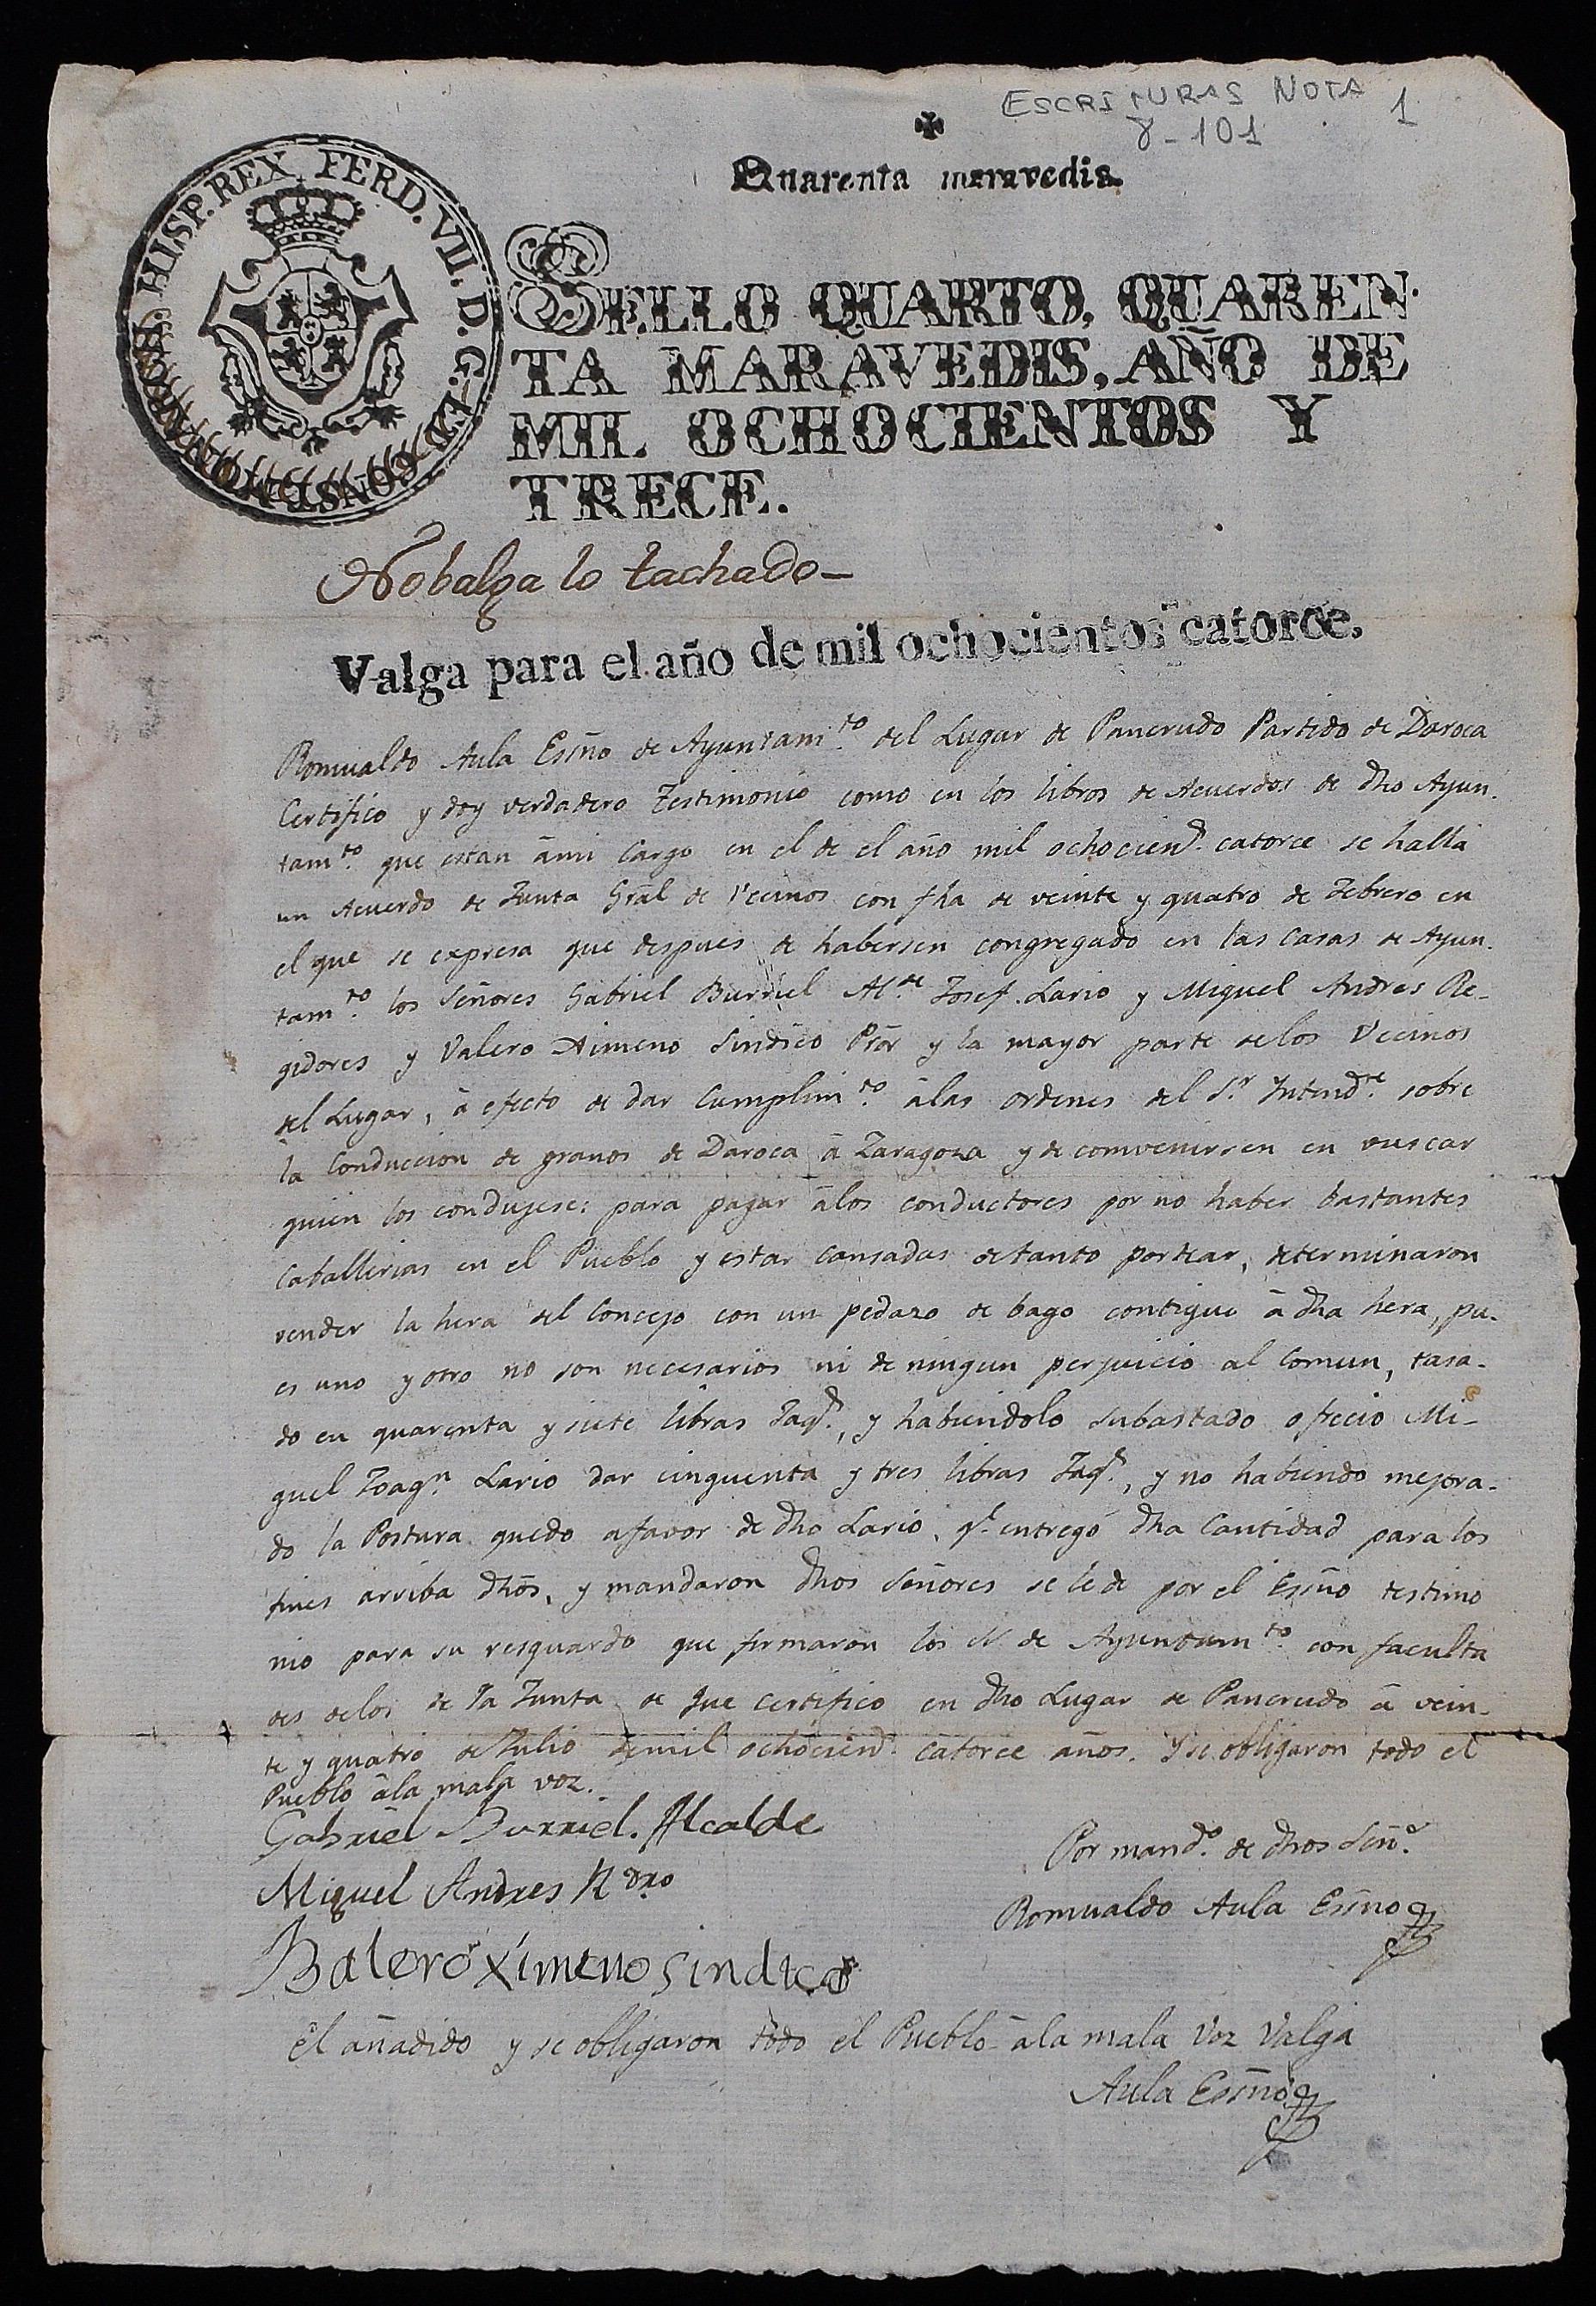 ESCRITURAS NOTA 1
8-101
Quarenta maravedis.
HISP. REX. FERD. VII. D. G. ET CONST. MONARCHIÆ
SELLO QUARTO, QUAREN-
TA MARAVEDIS, AÑO DE
MIL OCHOCIENTOS Y
TRECE.
No balga lo tachado—
Valga para el año de mil ochocientos catorce.
Romualdo Aula Esñno de Ayuntam.to del Lugar de Pancrudo Partido de Daroca
Certifico y doy verdadero Testimonio como en los libros de Acuerdos de dho Ayun-
tam.to que estan âmi Cargo en el de el año mil ochocien.s catorce se halla
un Acuerdo de Junta Gral de Vecinos con fha de veinte y quatro de Febrero en
el que se expresa que despues de habersen congregado en las Casas de Ayun-
tam.to los Señores Gabriel Burriel Al.de Josef Lario y Miguel Andres Re-
gidores y Valero Ximeno Sindico Pror y la mayor parte delos Vecinos
del Lugar, à efecto de dar Cumplim.to âlas ordenes del S.r Intend.te sobre
la Conduccion de granos de Daroca â Zaragoza y de comvenirsen en vuscar
quien los condugese: para pagar âlos conductores por no haber bastantes
Caballerias en el Pueblo y estar cansadas detanto portear, determinaron
vender la hera del Concejo con un pedazo de bago contiguo â dha hera, pu-
es uno y otro no son necesarios ni de ningun perjuicio al Comun, tasa-
do en quarenta y siete libras Jaq.s, y habiendolo subastado ofrecio Mi-
guel Joaq.n Lario dar cinquenta y tres libras Jaq.s, y no habiendo mejora-
do la Postura quedo afavor de dho Lario, q.e entregó dha Cantidad para los
fines arriba dhos, y mandaron dhos Señores se le de por el Esñno testimo
nio para su resguardo que firmaron los SS. de Ayuntam.to con faculta
des delos de la Junta de que certifico en dho Lugar de Pancrudo â vein-
te y quatro de Julio demil ochocien.s catorce años. Y se obligaron todo el
Pueblo âla mala voz.
Gabriel Burriel. Alcalde
Miguel Andres R.dro
Por mand.o de dhos Señ.s
Romualdo Aula Esñno
Balero Ximeno Sindico
El añadido y se obligaron todo el Pueblo âla mala Voz Valga
Aula Esñno